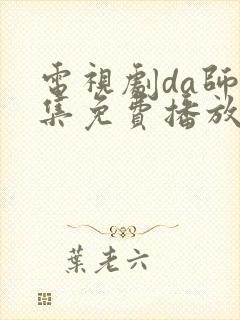 電視劇da師
集免費播放
葉老六